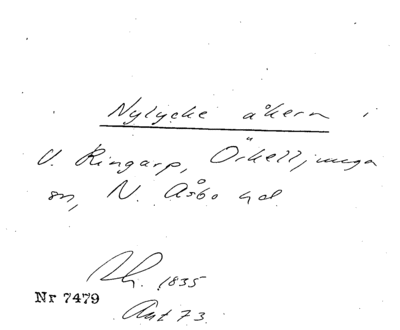 Nylycke åkern i
V. Ringarp, Örkelljunga
sn, N. Åsbo hd
1835
Nr 7479
Akt 73.